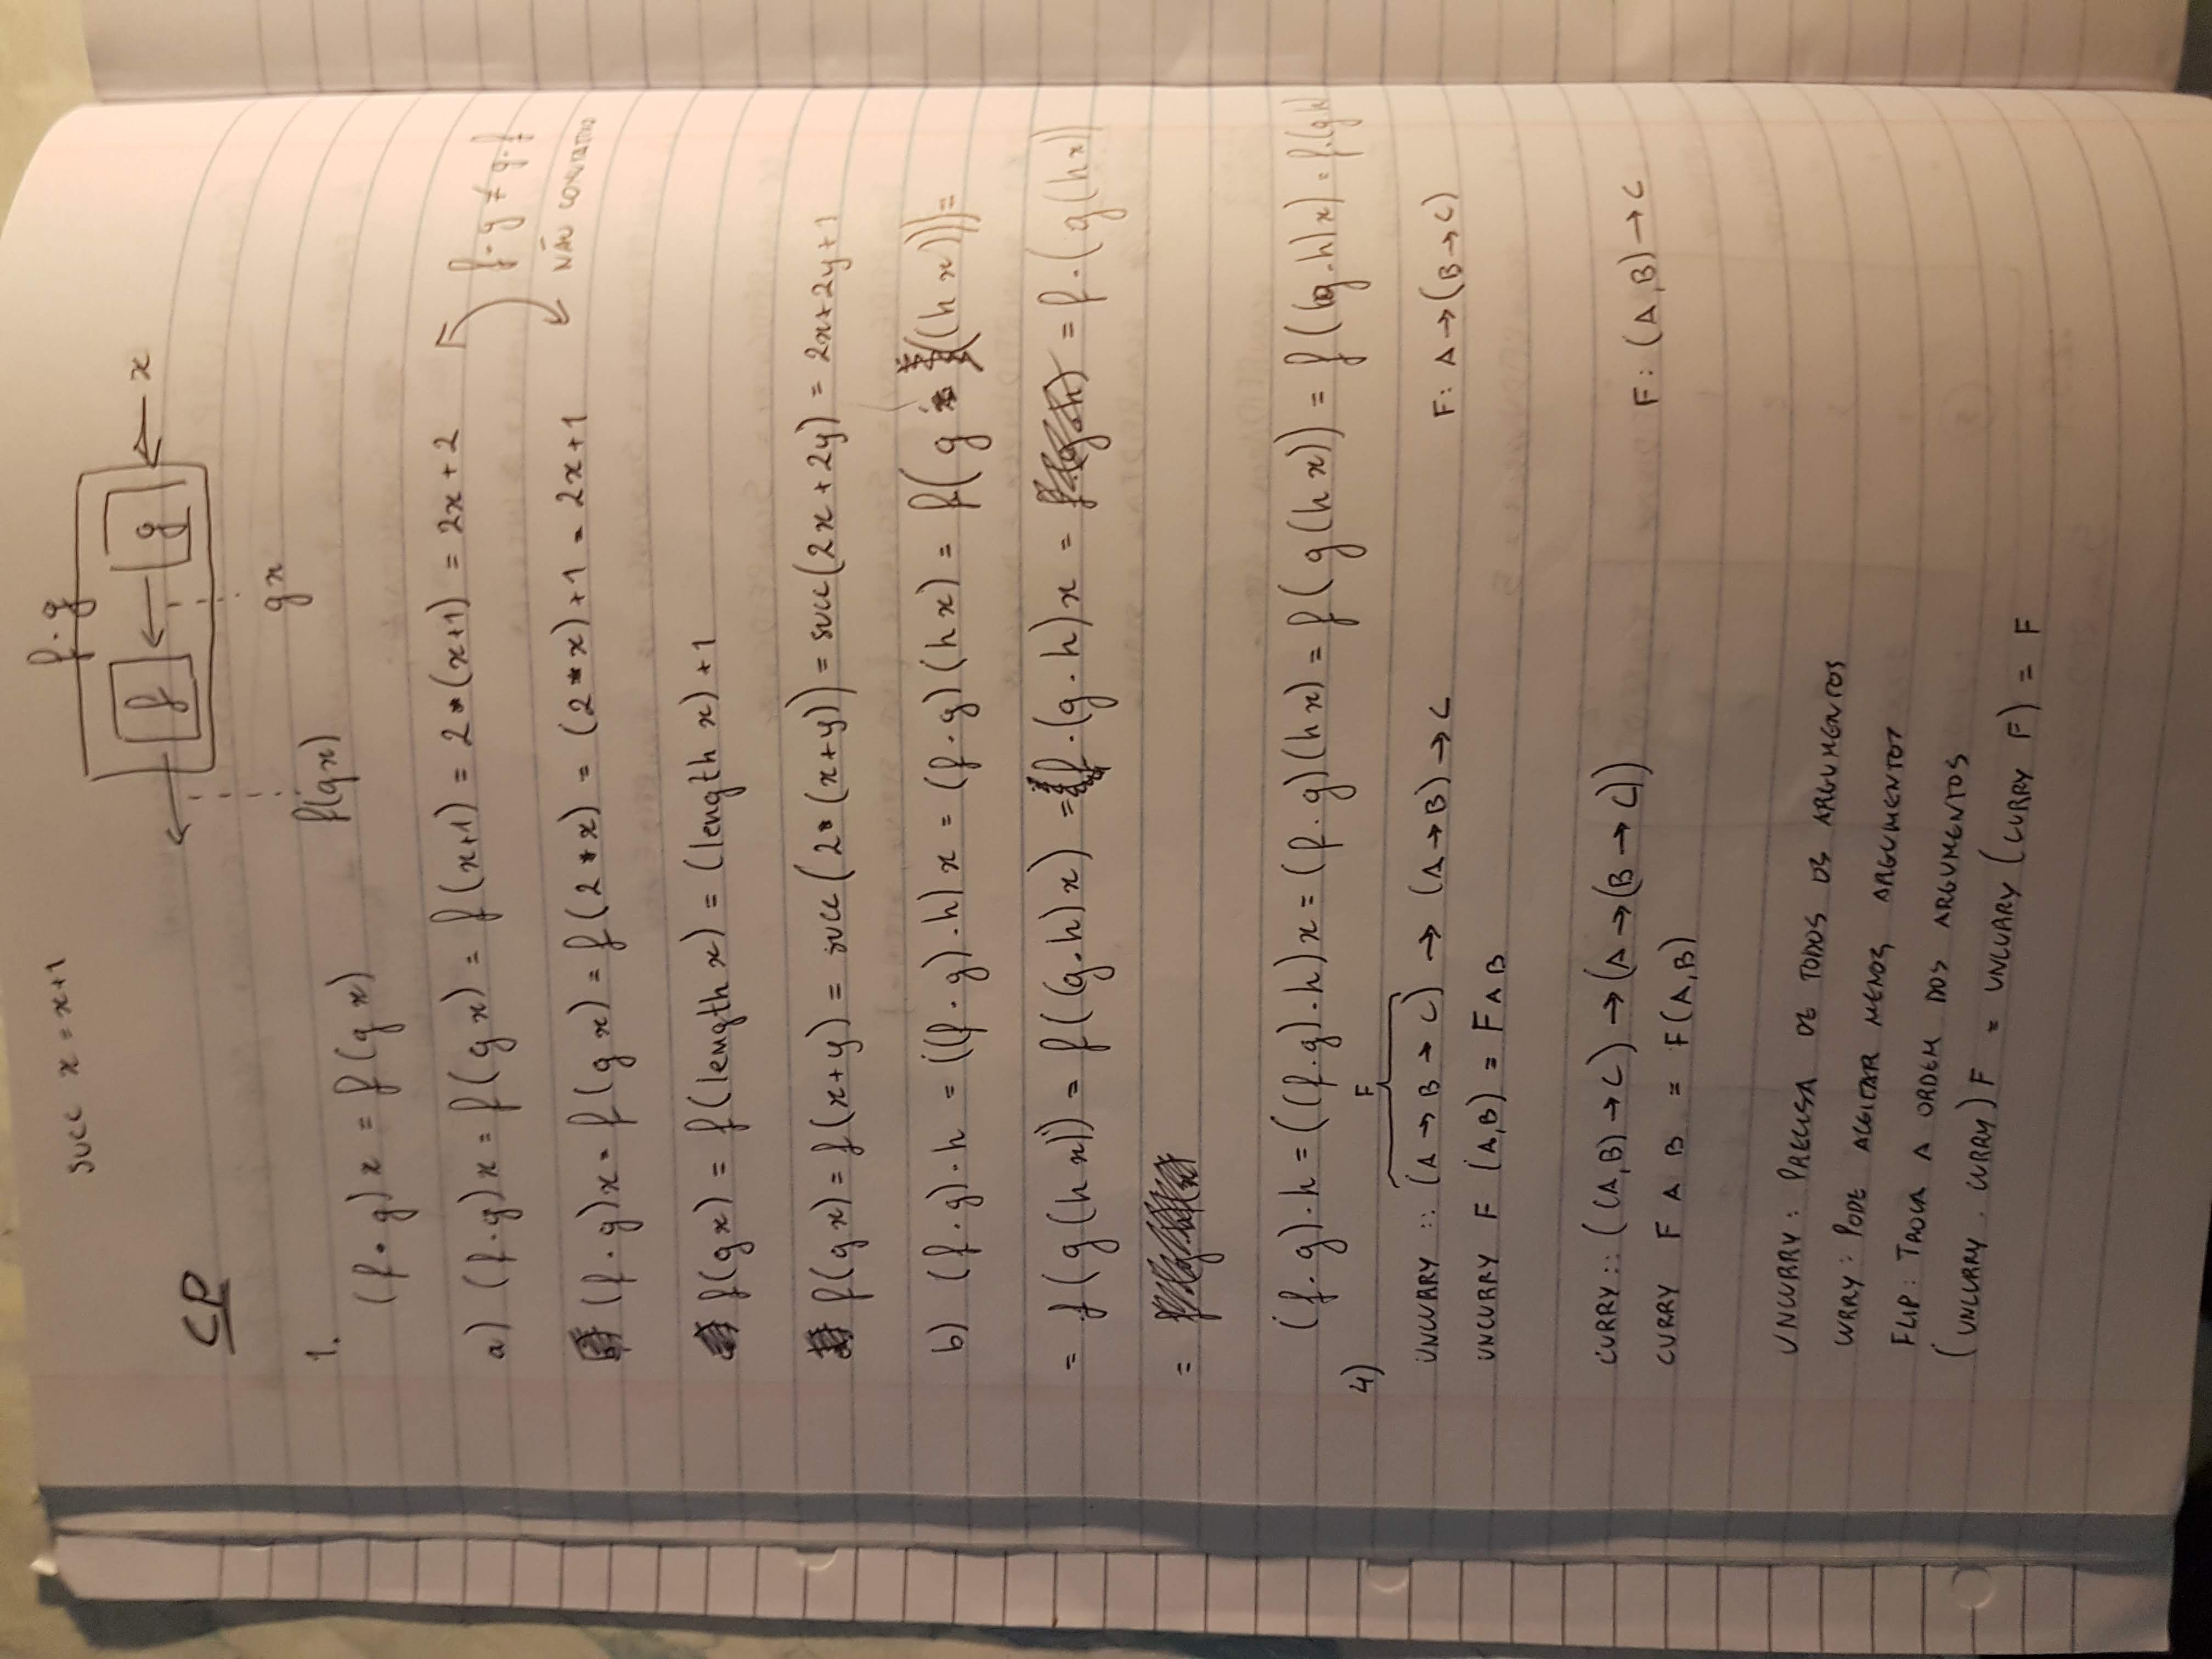 succ x = x+1
f · g
f ← g ← x
CP
g x
f(g x)
1.
(f · g) x = f (g x)
a) (f · g) x = f (g x) = f (x+1) = 2 * (x+1) = 2x + 2
f · g ≠ g · f
NÃO COMUTATIVO
(f · g) x = f (g x) = f (2 * x) = (2 * x) + 1 = 2x+1
f(g x) = f (length x) = (length x) + 1
f(g x) = f (x+y) = succ (2 * (x+y)) = succ (2x + 2y) = 2x+2y+1
b) (f · g) · h = ((f · g) · h) x = (f · g) (h x) = f( g ((h x))) =
= f (g (h x)) = f ((g · h) x) = f · (g · h) x = = f · (g (h x))
=
(f · g) · h = ((f · g) · h) x = (f · g) (h x) = f (g (h x)) = f ((g · h) x) = f · (g · h)
4)
F
UNCURRY :: (A → B → C) → (A → B) → C F: A → (B → C)
UNCURRY F (A,B) = F A B
CURRY :: ((A,B) → C) → (A → (B → C)) F: (A,B) → C
CURRY F A B = F(A,B)
UNCURRY: PRECISA DE TODOS OS ARGUMENTOS
CURRY: PODE ACEITAR MENOS ARGUMENTOS
FLIP: TROCA A ORDEM DOS ARGUMENTOS
(UNCURRY · CURRY) F = UNCURRY (CURRY F) = F